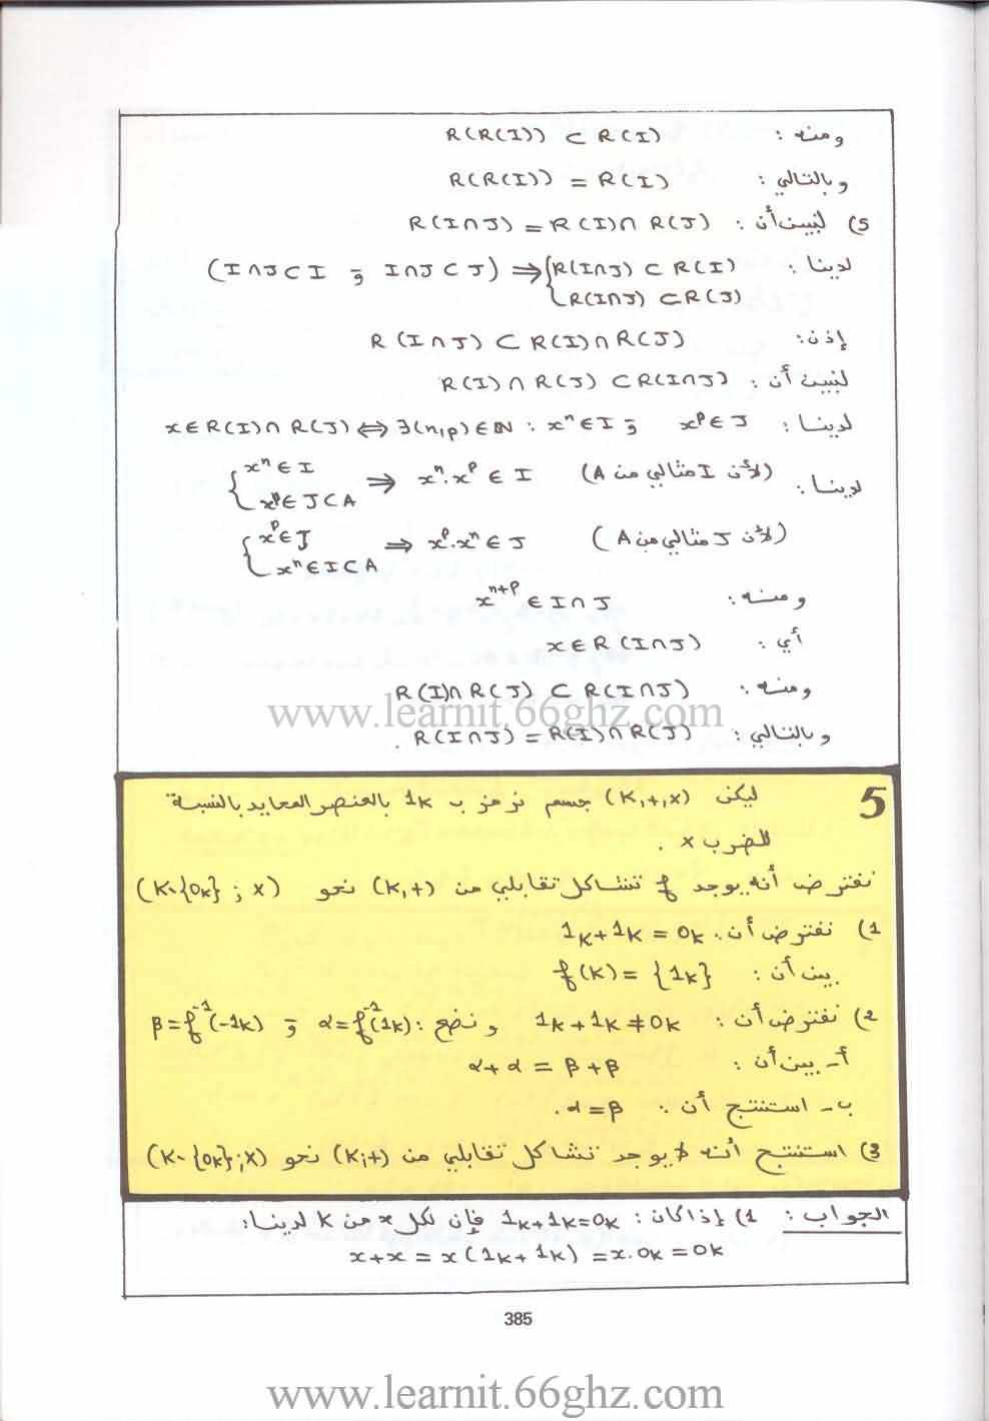 ومنه : R(R(I)) ⊂ R(I)
وبالتالي : R(R(I)) = R(I)
5) لنبين أن : R(I∩J) = R(I)∩ R(J)
لدينا : (I∩J⊂I و I∩J⊂J) ⇒ { R(I∩J) ⊂ R(I)
R(I∩J) ⊂ R(J)
إذن : R(I∩J) ⊂ R(I)∩R(J)
لنبين أن : R(I)∩R(J) ⊂ R(I∩J)
لدينا : x∈R(I)∩R(J) ⇔ ∃(n,p)∈ℕ : xⁿ∈I و xᵖ∈J
لدينا : { xⁿ∈I
xᵖ∈J⊂A ⇒ xⁿ.xᵖ ∈ I (لأن I مثالي من A)
{ xᵖ∈J
xⁿ∈I⊂A ⇒ xᵖ.xⁿ∈J (لأن J مثالي من A)
ومنه : xⁿ⁺ᵖ ∈ I∩J
أي : x∈R(I∩J)
ومنه : R(I)∩R(J) ⊂ R(I∩J)
www.learnit.66ghz.com
وبالتالي : R(I∩J) = R(I)∩R(J) .
5 ليكن (K,+,×) جسم نرمز ب 1k بالعنصر المحايد بالنسبة
للضرب × .
نفترض أنه يوجد f تشاكل تقابلي من (K,+) نحو (K\{0k} ; ×)
1) نفترض أن : 1k+1k = 0k
بين أن : f(K) = {1k}
2) نفترض أن : 1k+1k ≠ 0k و نضع : α=f⁻¹(1k) و β=f⁻¹(-1k)
أ- بين أن : α+α = β+β
ب- استنتج أن : α=β.
3) استنتج أنه لا يوجد تشاكل تقابلي من (K;+) نحو (K\{0k};×)
الجواب : 1) إذا كان : 1k+1k=0k فإن لكل x من K لدينا :
x+x = x(1k+1k) = x.0k = 0k
385
www.learnit.66ghz.com